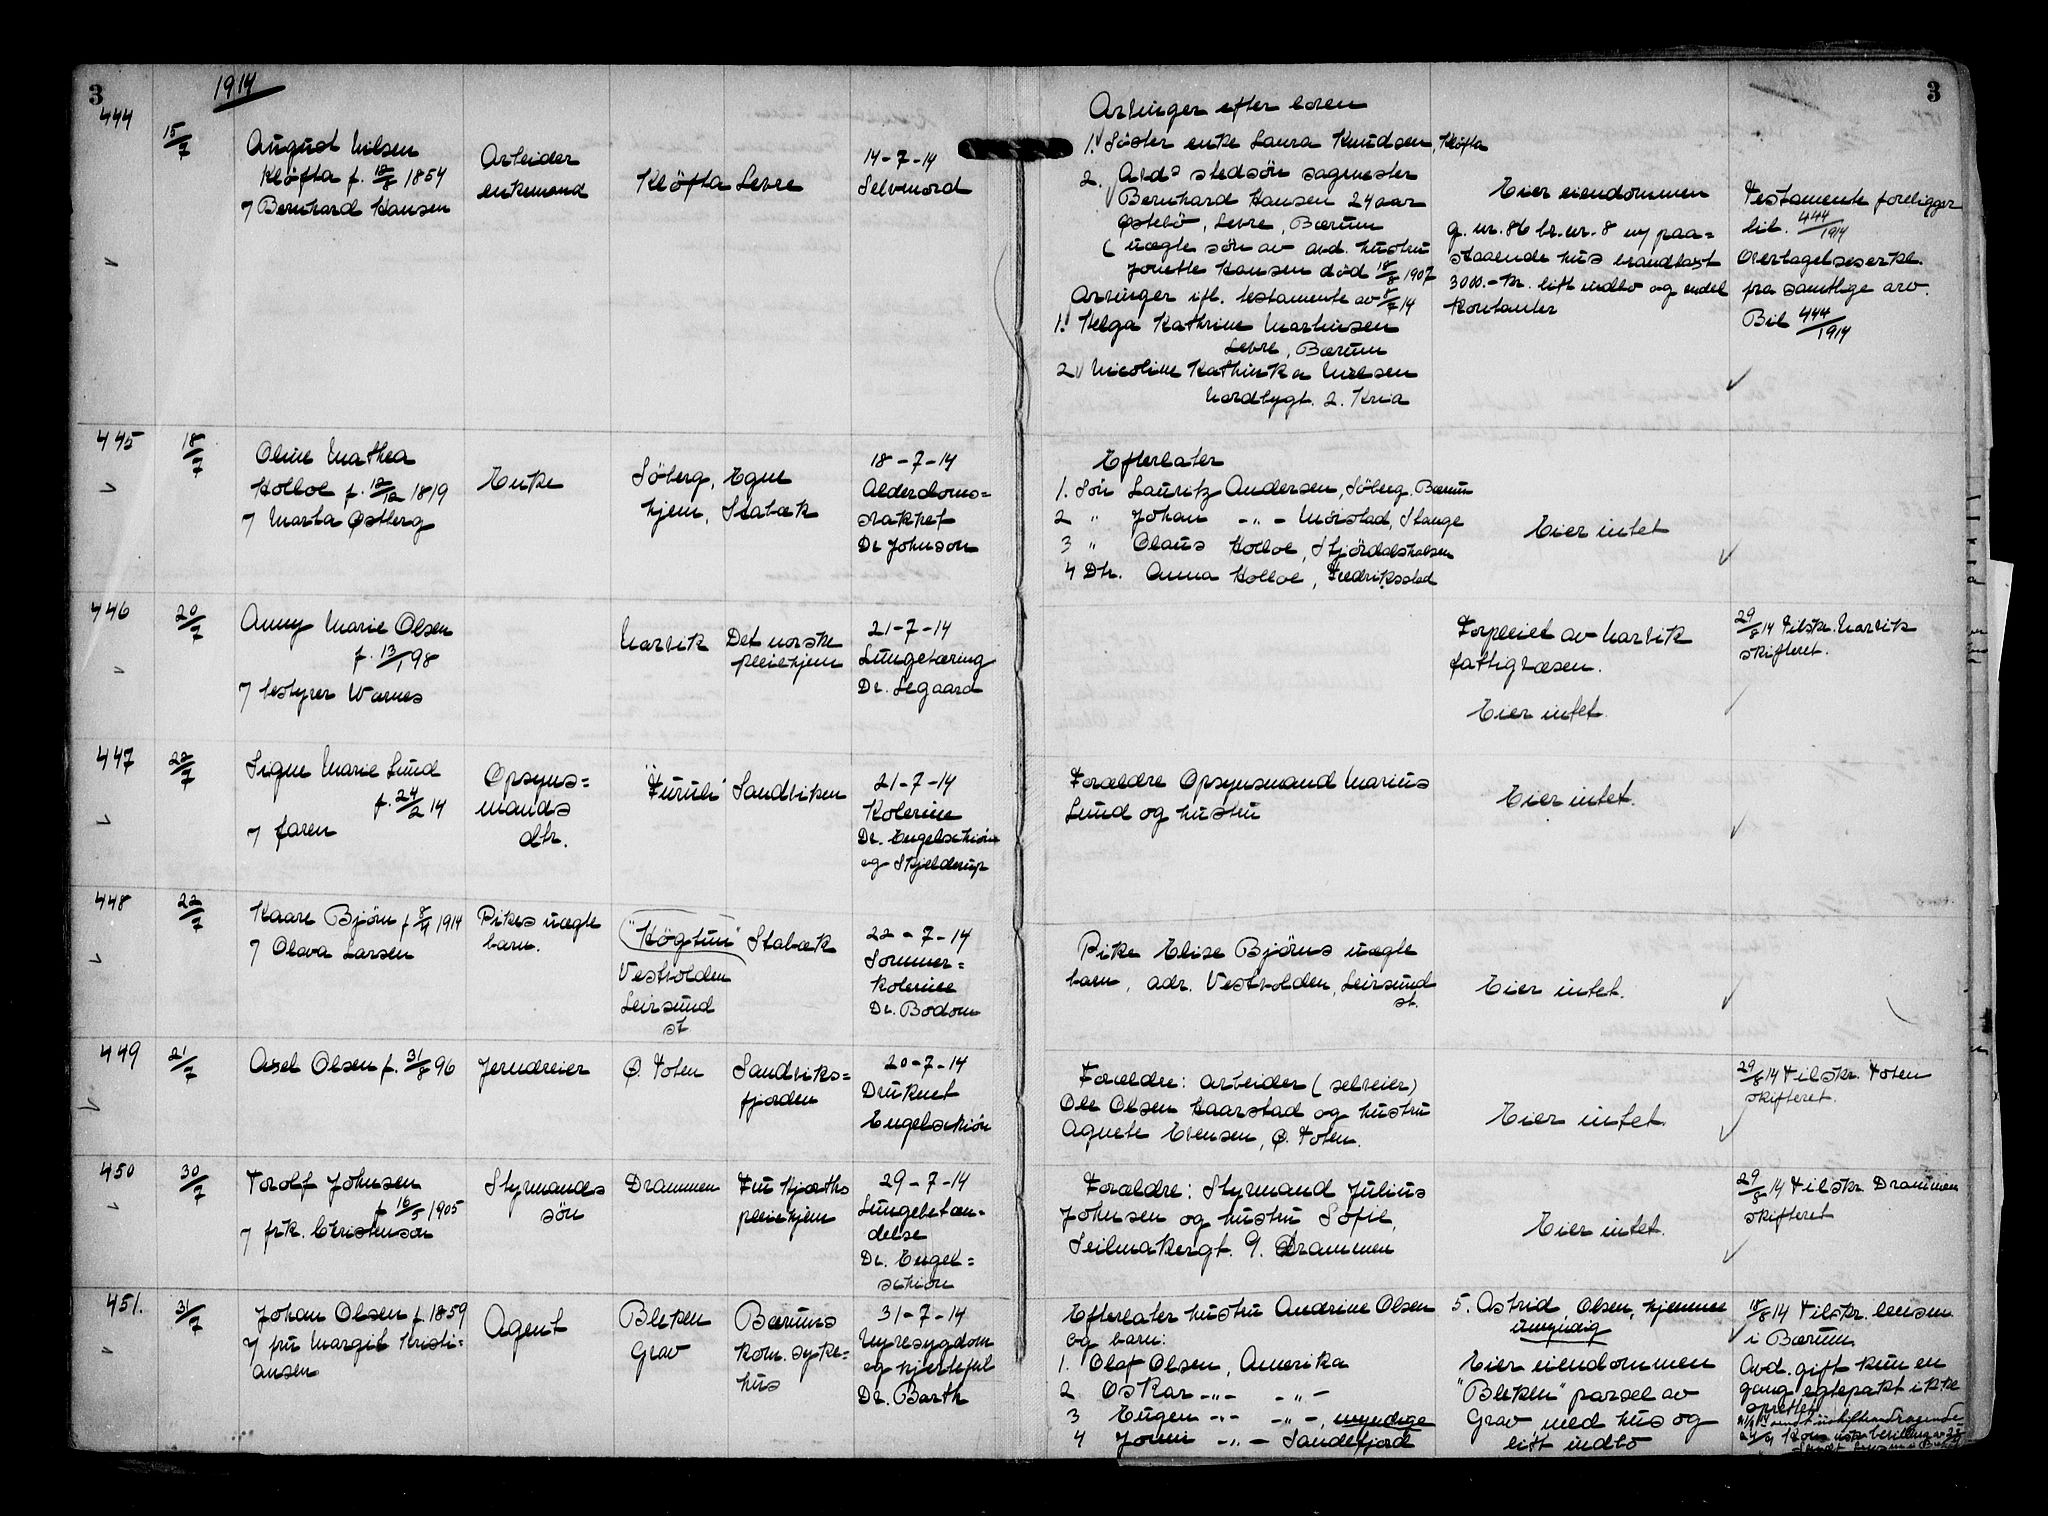 3
1914
3
444
15/7
August Nilsen
Kløfta f. 18/8 1854
7 Bernhard Hansen
Arbeider
enkemand
Kløfta Levre
14-7-14
Selvmord
Arvinger efter loven
1. Søster enke Laura Knudsen, Kløfta
2. Avds stedsøn sagmester
Bernhard Hansen 24 aar
Østebö, Levre, Bærum
(uægte søn av avd. hustru
Jonette Hansen død 18/8 1907
Arvinger ifl. testamente av 8/7 14
1. Helga Kathrine Martinsen
Levre, Bærum
2 Nicoline Kathinka Nilsen
Nordbygt. 2. Kria
Eier eiendommen
g. nr. 86 br. nr. 8 m/ paa=
staaende hus brandtaxt
3000.- kr. litt indbo og endel
kontanter
Testamente foreligger
bil. 444/1914
Overtagelseserkl.
fra samtlige arv.
Bil 444/1914
445
18/7
Oline Mathea
Holloe f. 12/12 1819
7 Marta Østberg
Enke
Söberg, Egne
hjem, Stabæk
18-7-14
Alderdoms=
svakhet
Dr Johnson
Efterlater
1. Søn Lauritz Andersen, Söberg. Bærum
2 " Johan -"- Mörstad, Stange
3 " Olaus Holloe, Stjördalshalsen
4 Dtr. Anna Holloe, Fredriksstad
Eier intet
446
20/7
Anny Marie Olsen
f. 13/1 98
7 bestyrer Warnes
Narvik Det norske
pleiehjem
21-7-14
Lungetæring
Dr. Segaard
Forpleiet av Narvik
fattigvæsen.
Eier intet.
29/8 14 Tilskr. Narvik
skifteret.
447
22/7
Signe Marie Lund
f. 24/2 14
7 faren
Opsyns=
mands
dtr.
"Furuli" Sandviken
21-7-14
Kolerine
Dr. Engelschiøn
og Skjelderup
Forældre Opsynsmand Marius
Lund og hustru
Eier intet.
448
22/7
Kaare Bjørn f 8/4 1914
7 Olava Larsen
Pikes uægte
barn.
"Högtun" Stabæk
Vestvolden
Leirsund
st
22-7-14
Sommer=
kolerine
Dr. Bodom
Pike Elise Bjørns uægte
barn, adr. Vestvolden, Leirsund
st.
Eier intet.
449
21/7
Axel Olsen f. 31/8 96
Jerndreier
Ø. Toten
Sandviks=
fjorden
20-7-14
Druknet
Engelschiøn
Forældre: arbeider (selveier)
Ole Olsen Haarstad og hustru
Agnete Evensen, Ø. Toten.
Eier intet.
29/8 14 Tilskr. Toten
skifteret.
450
30/7
Torolf Johnsen
f 16/5 1905
7 frk. Christensen
Styrmands
søn
Drammen
Fru Kjærths
pleiehjem
29-7-14
Lungebetæn-
delse
Dr. Engel=
schiøn
Forældre: Styrmand Julius
Johnsen og hustru Sofie,
Seilmakergt. 9. Drammen
Eier intet.
29/8 14 Tilskr. Drammen
skifteret
451.
31/7
Johan Olsen f. 1859
7 fru Margit Kristi-
ansen
Agent
Bleken
Grav
Bærums
kom. syke=
hus
31-7-14
Nyresygdom
og hjertefeil
Dr. Barth
Efterlater hustru Andrine Olsen
og barn:
1. Olaf Olsen, Amerika
2 Oskar -"- -"-
3 Eugen -"- -"-, myndige
4 Jonni -"- Sandefjord
5. Astrid Olsen, hjemme
umyndig
Eier eiendommen
"Bleken" parsel av
Grav med hus og
litt indbo
18/8 14 Tilskr. lensm
i Bærum
Avd. gift kun en
gang egtepakt ikke
oprettet